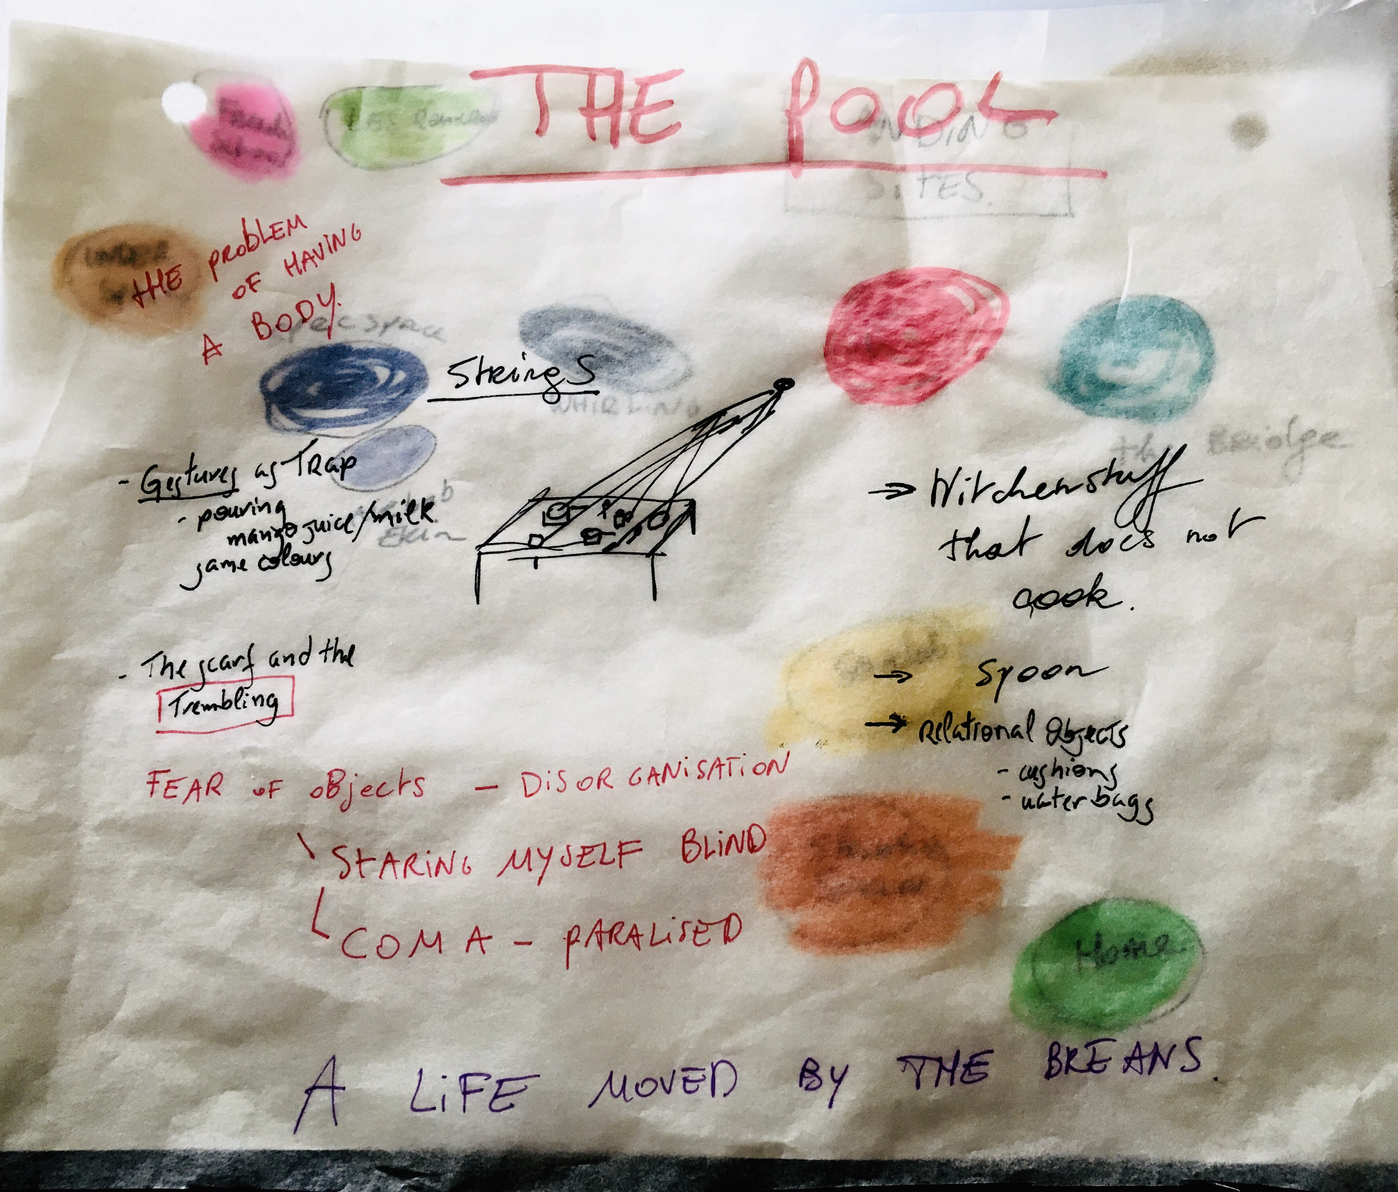 THE POOL
LANDING
SITES.
THE PROBLEM
OF HAVING
A BODY.
StringS
WHIRLING
the Bridge
- Gestures as TRap
- pouring
mango juice/milk
same colours
skin
→ Kitchenstuff
that does not
cook.
- The scarf and the
Trembling
→ Spoon
→ Relational Objects
- cushions
- water bags
FEAR OF OBjects – DISORGANISATION
STARING MYSELF BLIND
COMA – PARALISED
Home
A LIFE MOVED BY THE BREANS.